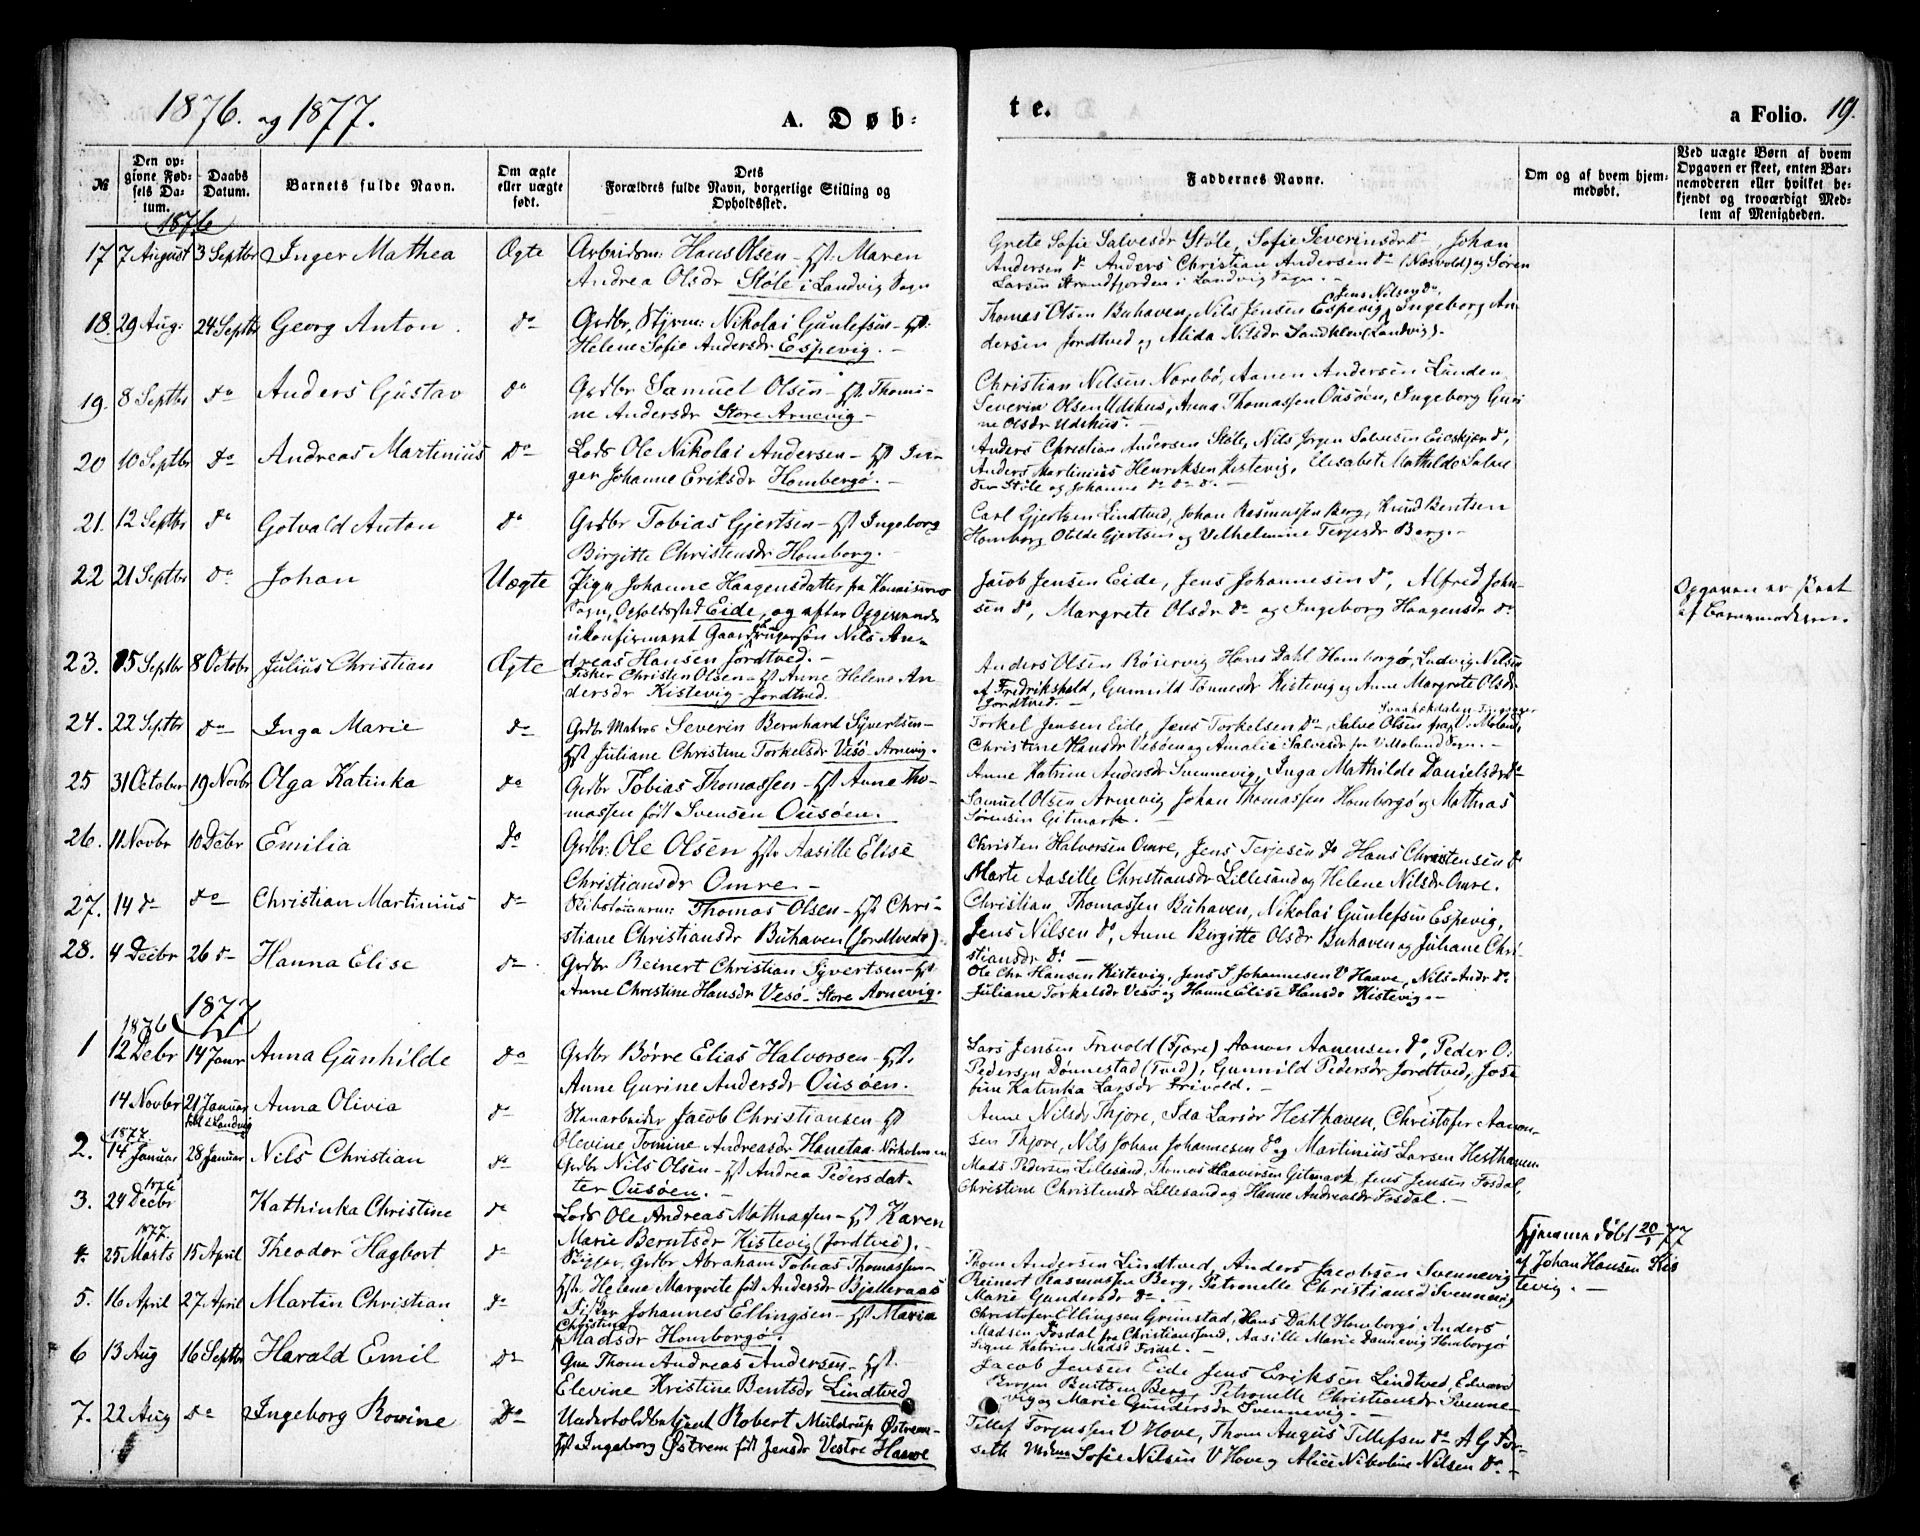 1876. og 1877.
A. Døb-
te.
a Folio. 19.
№
Den op-
givne Fød-
sels Da-
tum.
Daabs
Datum.
Barnets fulde Navn.
Om ægte
eller uægte
født.
Dets
Forældres fulde Navn, borgerlige Stilling og
Opholdssted.
Faddernes Navne.
Om og af hvem hjem-
medøbt.
Ved uægte Børn af hvem
Opgaven er skeet, enten Bar-
nemoderen eller hvilket be-
kjendt og troværdigt Med-
lem af Menigheden.
1876
17 7 August 3 Septbr Inger Mathea Ægte Arbeidsm: Hans Olsen - Hst: Maren
Andrea Olsdr Støle i Landvig Sogn
Grete Sofie Salvesdr Støle, Sofie Severinsdr do, Johan
Andersen do Anders Christian Andersen do (Næsvold) og Søren
Larsen Strandfjorden i Landvig Sogn. -
18. 29 Aug: 24 Septbr Georg Anton. do Grdbr, Styrm: Nikolai Gunlefsen - Hst:
Helene Sofie Andersdr Espevig. -
Jens Nilsen do,
Thomas Olsen Buhaven, Nils Jensen Espevig, Ingeborg An-
dersen Jordtved og Alida Nilsdr Sandklev (Landvig).
19. 8 Septbr do Anders Gustav do Grdbr Samuel Olsen - Hst: Thomi-
ne Andersdr Store Arnevig -
Christian Nilsen Norebø, Aanen Andersen Linden
Severin Olsen Udihus, Anna Thomassen Ousöen, Ingeborg Guri
ne Olsdr Udihus. -
20 10 Septbr Do Andreas Martinius Do Lods Ole Nikolai Andersen - Hst In-
ger Johanne Eriksdr Hombergö. -
Anders Christian Andersen Støle, Nils Jörgen Salvesen Eieskjær do,
Anders Martinius Henriksen Kistevig, Elisabet Mathilde Salve
dr Støle og Johanne do do do. -
21. 12 Septbr do Gotvald Anton do Grdbr Tobias Gjertsen - Hst Ingeborg
Birgitte Christensdr Homborg. -
Carl Gjertsen Lindtved, Johan Rasmussen Berg, Knud Bentsen
Homborg Otilde Gjertsen og Vilhelmine Terjesdr Berg. -
22 21 Septbr do Johan Uægte Pige Johanne Haagensdatter fra
Sogn, Opholdssted Eide, og efter Opgivende
ukonfirmeret Gaardbrugersön Nils An-
dreas Hansen Jordtved. -
Jacob Jensen Eide, Jens Johannesen do, Alfred John-
sen do, Margrete Olsdr do og Ingeborg Haagensdr do
Opgaven er skeet
af Barnemoderen.
23. 15 Septbr 8 Octobr Julius Christian Ægte Fisker Christen Olsen - Hst Anne Helene An-
dersdr Kistevig - Jordtved.
Anders Olsen Røsevig Hans Dahl Homborgö, Ludvig Nilsen
af Fredrikshald, Gunnild Tønnesdr Kistevig og Anne Margrete Olsdr
Jordtved. -
24. 22 Septbr do Inga Marie do Grdbr Matros Severin Bernhard Syvertsen -
Hst Juliane Christine Torkelsdr Vesö - Arnevig.
Torkel Jensen Eide, Jens Torkelsen do Salve Olsen fra V. Moland,
Christine Hansdr Vesöen og Amalia Salvesdr fra V Moland Sogn. -
25 31 October 19 Novbr Olga Katinka do Grdbr Tobias Thomassen - Hst Anne Tho-
massen født Svensen Ousöen. -
Anne Katrine Andersdr Svennevig, Inga Mathilde Danielsdr do
Samuel Olsen Arnevig Johan Thomassen Homborgö og Mathias
Sörensen Gitmark. -
26. 11 Novbr 10 Debr Emilia Do Grdbr: Ole Olsen Hst Aasille Elise
Christiansdr Omre -
Christen Halvorsen Omre, Jens Terjesen do Hans Christensen do
Marte Aasille Christiansdr Lillesand og Helene Nilsdr Omre.
27. 14 do do Christian Martinius do Skibstømmerm: Thomas Olsen - Hst Chri-
stiane Christiansdr Buhaven (Jordtved).
Christian, Thomassen Buhaven, Nikolai Gunlefsen Espevig,
Jens Nilsen do, Anne Birgitte Olsdr Buhaven og Juliane Chri-
stiansdr do. -
28. 4 Decbr 26 do Hanna Elise do Grdbr Reinert Christian Syvertsen - Hst
Anne Christine Hansdr Vesö - Store Arnevig.
Ole Chr Hansen Kistevig, Jens J Johannesen V Haave, Nils Andr do
Juliane Torkelsdr Vesö og Hanne Elise Hansdr Kistevig. -
1877
1876
1 12 Debr 14 Janr Anna Gunhilde do Grdbr Börre Elias Halvorsen - Hst.
Anne Gurine Andersdr Ousöen.
Lars Jensen Frivold (Fjære) Aanon Aanensen do, Peder O.
Pedersen Dønnestad (Tved), Gunnild Pedersdr Jordtved, Jose
fine Katinka Larsdr Frivold. -
14 Novbr 21 Januar Anna Olivia do Stenarbeider Jacob Christiansen Hst
født i Landvig
Olevine Tomine Andreasdr Hanetaa - Norholmen
Anne Nilsdr Thjore, Ida Larsdr Hesthaven, Christofer Aanon-
sen Thjore, Nils Johan Johannesen do og Martinius Larsen Hesthaven
1877.
2. 14 Januar 28 Januar Nils Christian do Grdbr Nils Olsen - Hst Andrea Pedersdat-
ter Ousöen. -
Mads Pedersen Lillesand, Thomas Haaversen Gitmark, Jens Jensen Fosdal,
Christine Christensdr Lillesand og Hanne Andreasdr Fosdal. -
1876
3. 24 Decbr Kathinka Christine do Lods Ole Andreas Mathiassen - Hst Karen
Marie Berntsdr Kistevig (Jordtved). -
Hjemmedøbt 20/1 77
af Johan Hansen Kis
tevig. -
1877.
4. 25 Marts 15 April Theodor Hagbart do Skipper, Grdbr Abraham Tobias Thomassen -
Hst. Helene Margrete født Andersdr Bjelleraas
Thom Andersen Lindtved, Anders Jacobsen Svennevig
Reinert Rasmussen Berg, Petronelle Christiansd Svennevig
Marie Gundersdr do -
5. 16 April 27 April Martin Christian do Fisker Johannes Ellingsen - Hst Maria
Christine
Madsdr Homborgö. -
Christofer Ellingsen Grimstad, Hans Dahl Homborgö Anders
Madsen Fosdal fra Christianssund, Aasille Marie Dannevig Homborgö
Signe Katrine Madsd Fosdal. -
6 13 Aug 16 Septbr Harald Emil Do Gm Thom Andreas Andersen - Hst.
Elevine Kristine Bentsdr Lindtved
Jacob Jensen Eide Jens Eriksen Lindtved, Edvard
Bentsen Berg, Petronelle Christiansdr Svenne-
vig og Marie Gundersdr Svennevig. -
7. 22 Aug do Ingeborg Rovine Do Underholdbetjent Robert Muldrup Østrem -
Hst Ingeborg Østrem født Jensdr Vestre Haave
Tellef Torjussen V Hove, Thom August Tellefsen do A G For-
seth Sofie Nilsen V Hove og Alice Nikoline Nilsen do. -